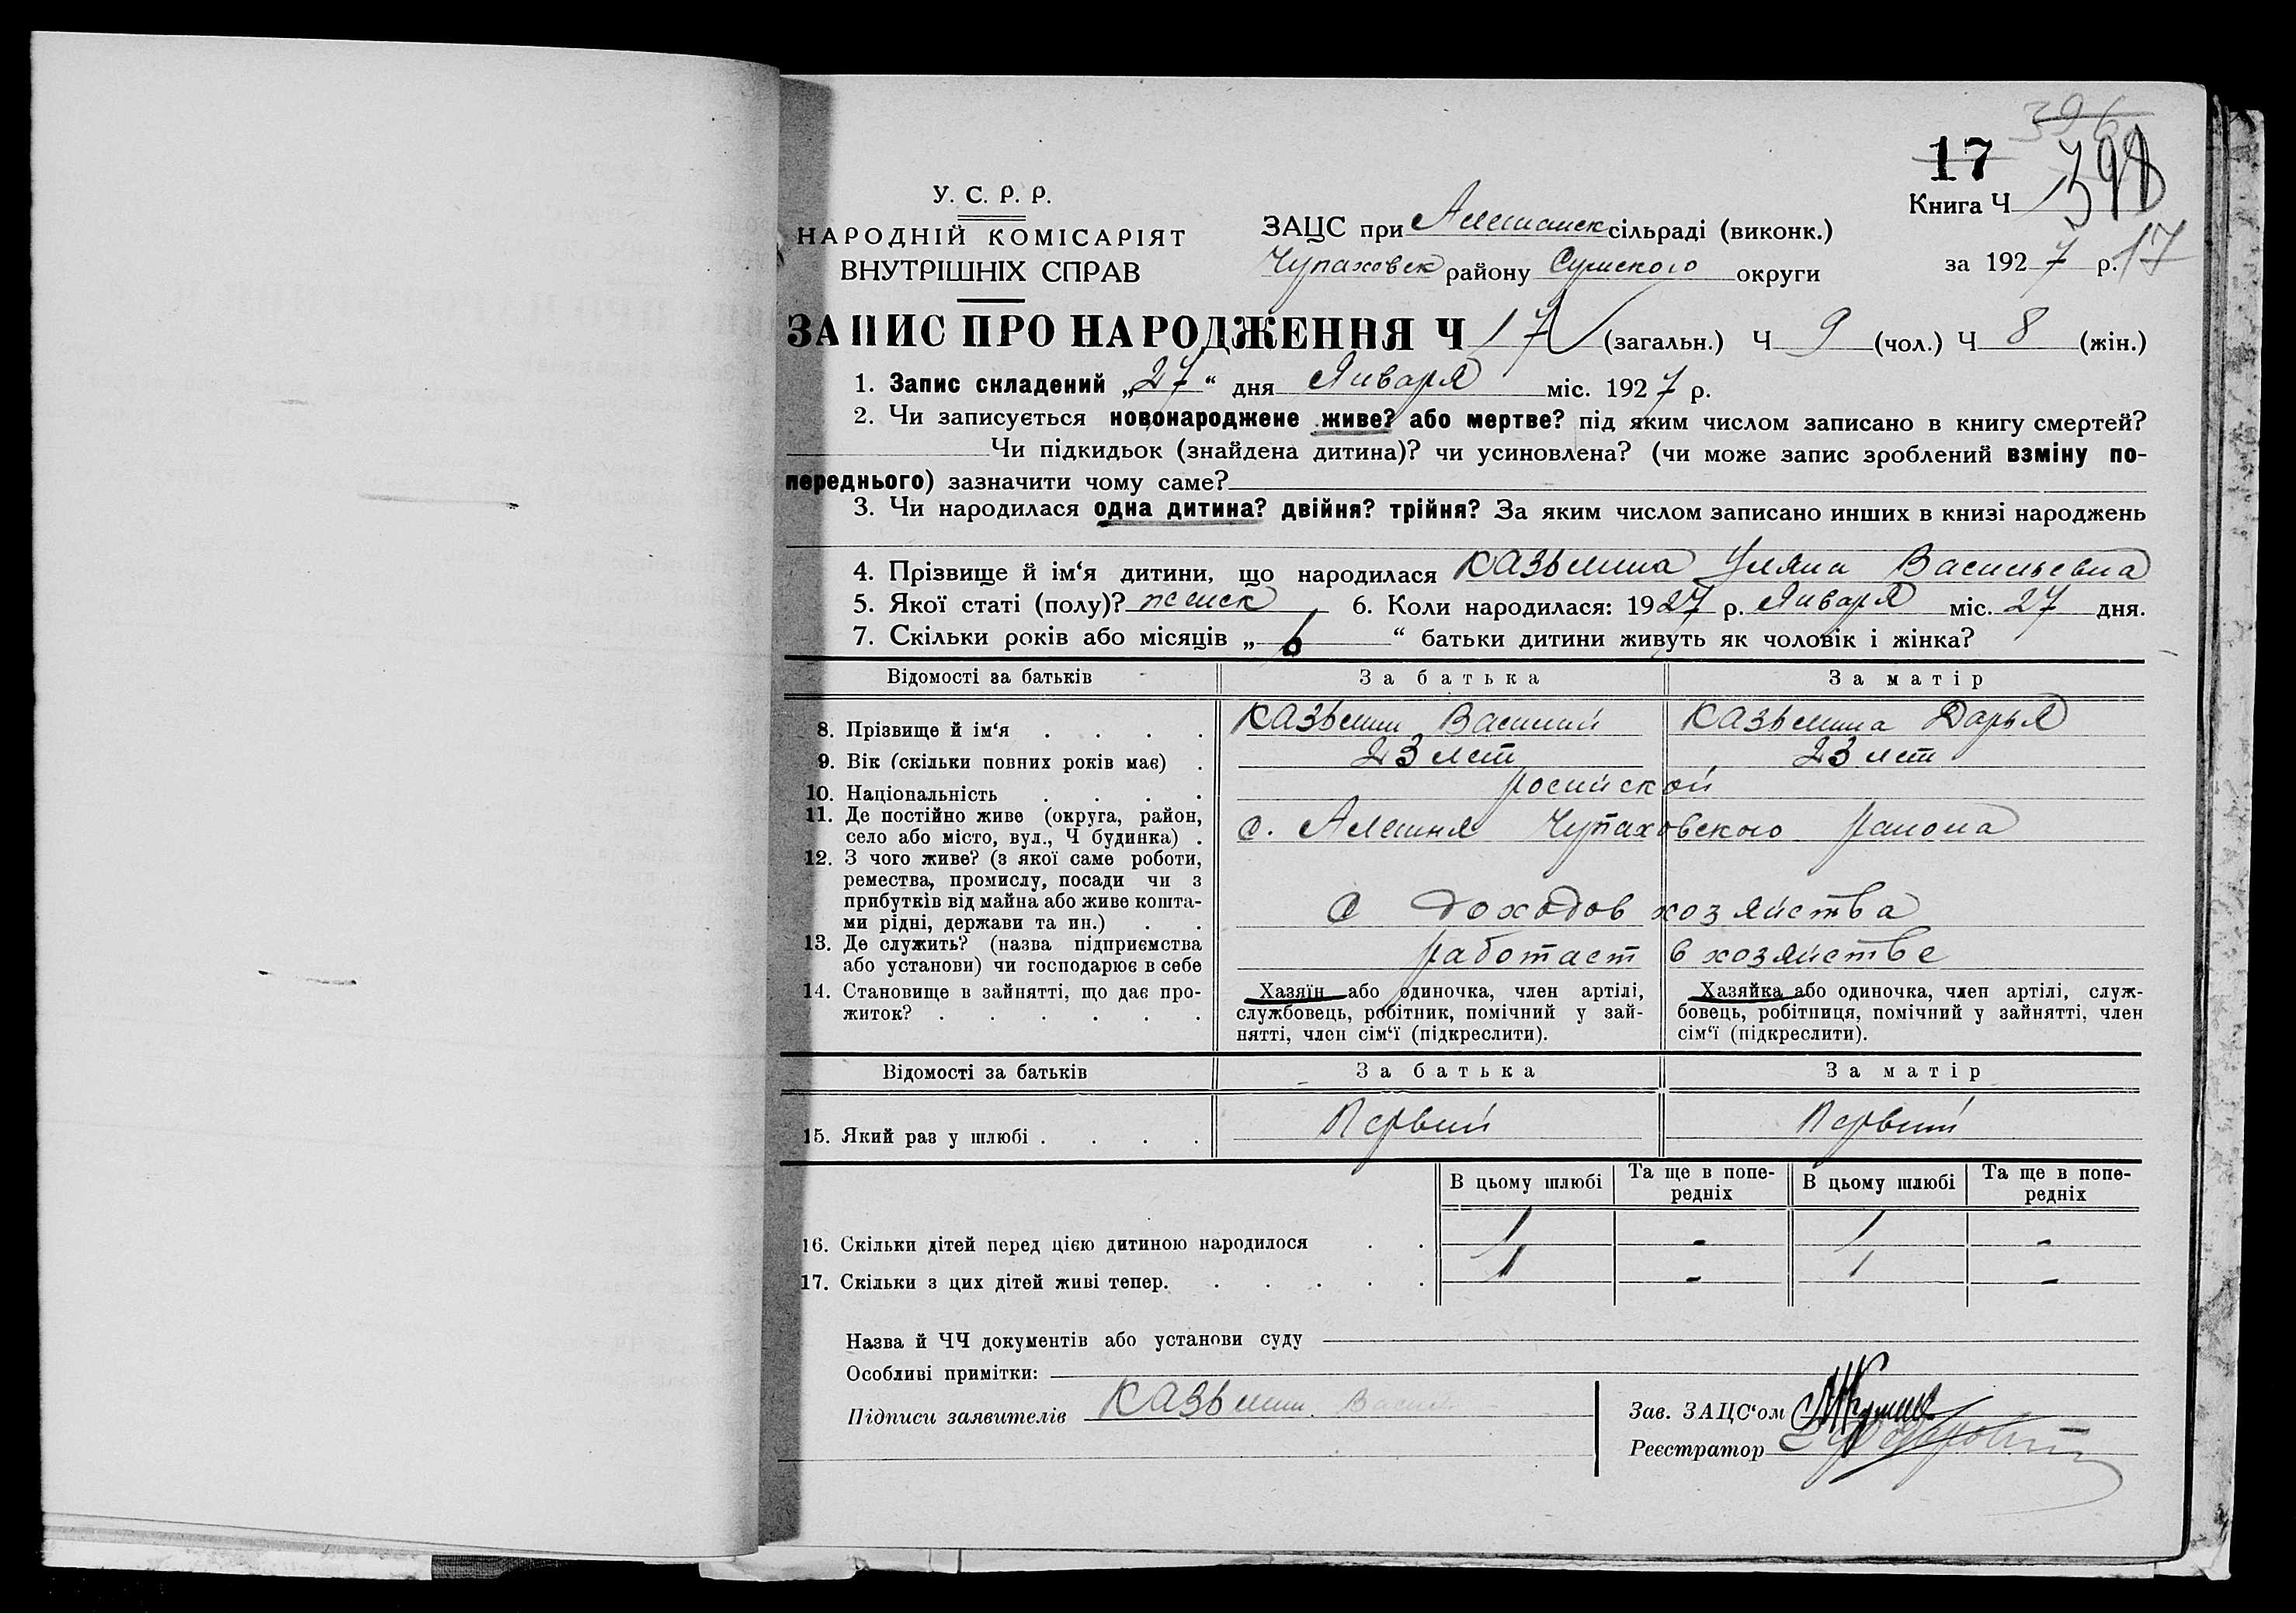 396
17 398
У. С. Р. Р.
Книга Ч
НАРОДНІЙ КОМІСАРІЯТ
ВНУТРІШНІХ СПРАВ
ЗАЦС при Алешанск сільраді (виконк.)
Чупаховск району Сумского округи
за 1927 р. 17
ЗАПИС ПРО НАРОДЖЕННЯ Ч 17 (загальн.) Ч 9 (чол.) Ч 8 (жін.)
1. Запис складений „27“ дня Января міс. 1927 р.
2. Чи записується новонароджене живе? або мертве? під яким числом записано в книгу смертей?
Чи підкидьок (знайдена дитина)? чи усиновлена? (чи може запис зроблений взміну по-
переднього) зазначити чому саме?
3. Чи народилася одна дитина? двійня? трійня? За яким числом записано инших в книзі народжень
4. Прізвище й ім‘я дитини, що народилася Казьмина Уляна Васильевна
5. Якої статі (полу)? женск 6. Коли народилася: 1927 р. Января міс. 27 дня.
7. Скільки років або місяців „6“ батьки дитини живуть як чоловік і жінка?
Відомості за батьків За батька За матір
8. Прізвище й ім‘я . . . . Казьмин Василий Казьмина Дарья
9. Вік (скільки повних років має) . 23 лет 23 лет
10. Національність . . . . росийской
11. Де постійно живе (округа, район,
село або місто, вул., Ч будинка) . с. Алешня Чупаховского района
12. З чого живе? (з якої саме роботи,
ремества, промислу, посади чи з
прибутків від майна або живе кошта-
ми рідні, держави та ин.) . . С доходов хозяйства
13. Де служить? (назва підприємства
або установи) чи господарює в себе работает в хозяйстве
14. Становище в зайнятті, що дає про-
житок? . . . . . .
Хазяїн або одиночка, член артілі,
службовець, робітник, помічний у зай-
нятті, член сім‘ї (підкреслити).
Хазяйка або одиночка, член артілі, служ-
бовець, робітниця, помічний у зайнятті, член
сім‘ї (підкреслити).
Відомості за батьків За батька За матір
15. Який раз у шлюбі . . . . Первий Первий
В цьому шлюбі Та ще в попе-
редніх В цьому шлюбі Та ще в попе-
редніх
16. Скільки дітей перед цією дитиною народилося . . 1 - 1 -
17. Скільки з цих дітей живі тепер. . . . . . 1 - 1 -
Назва й ЧЧ документів або установи суду
Особливі примітки:
Підписи заявителів Казьмин Васил
Зав. ЗАЦС‘ом
Реєстратор